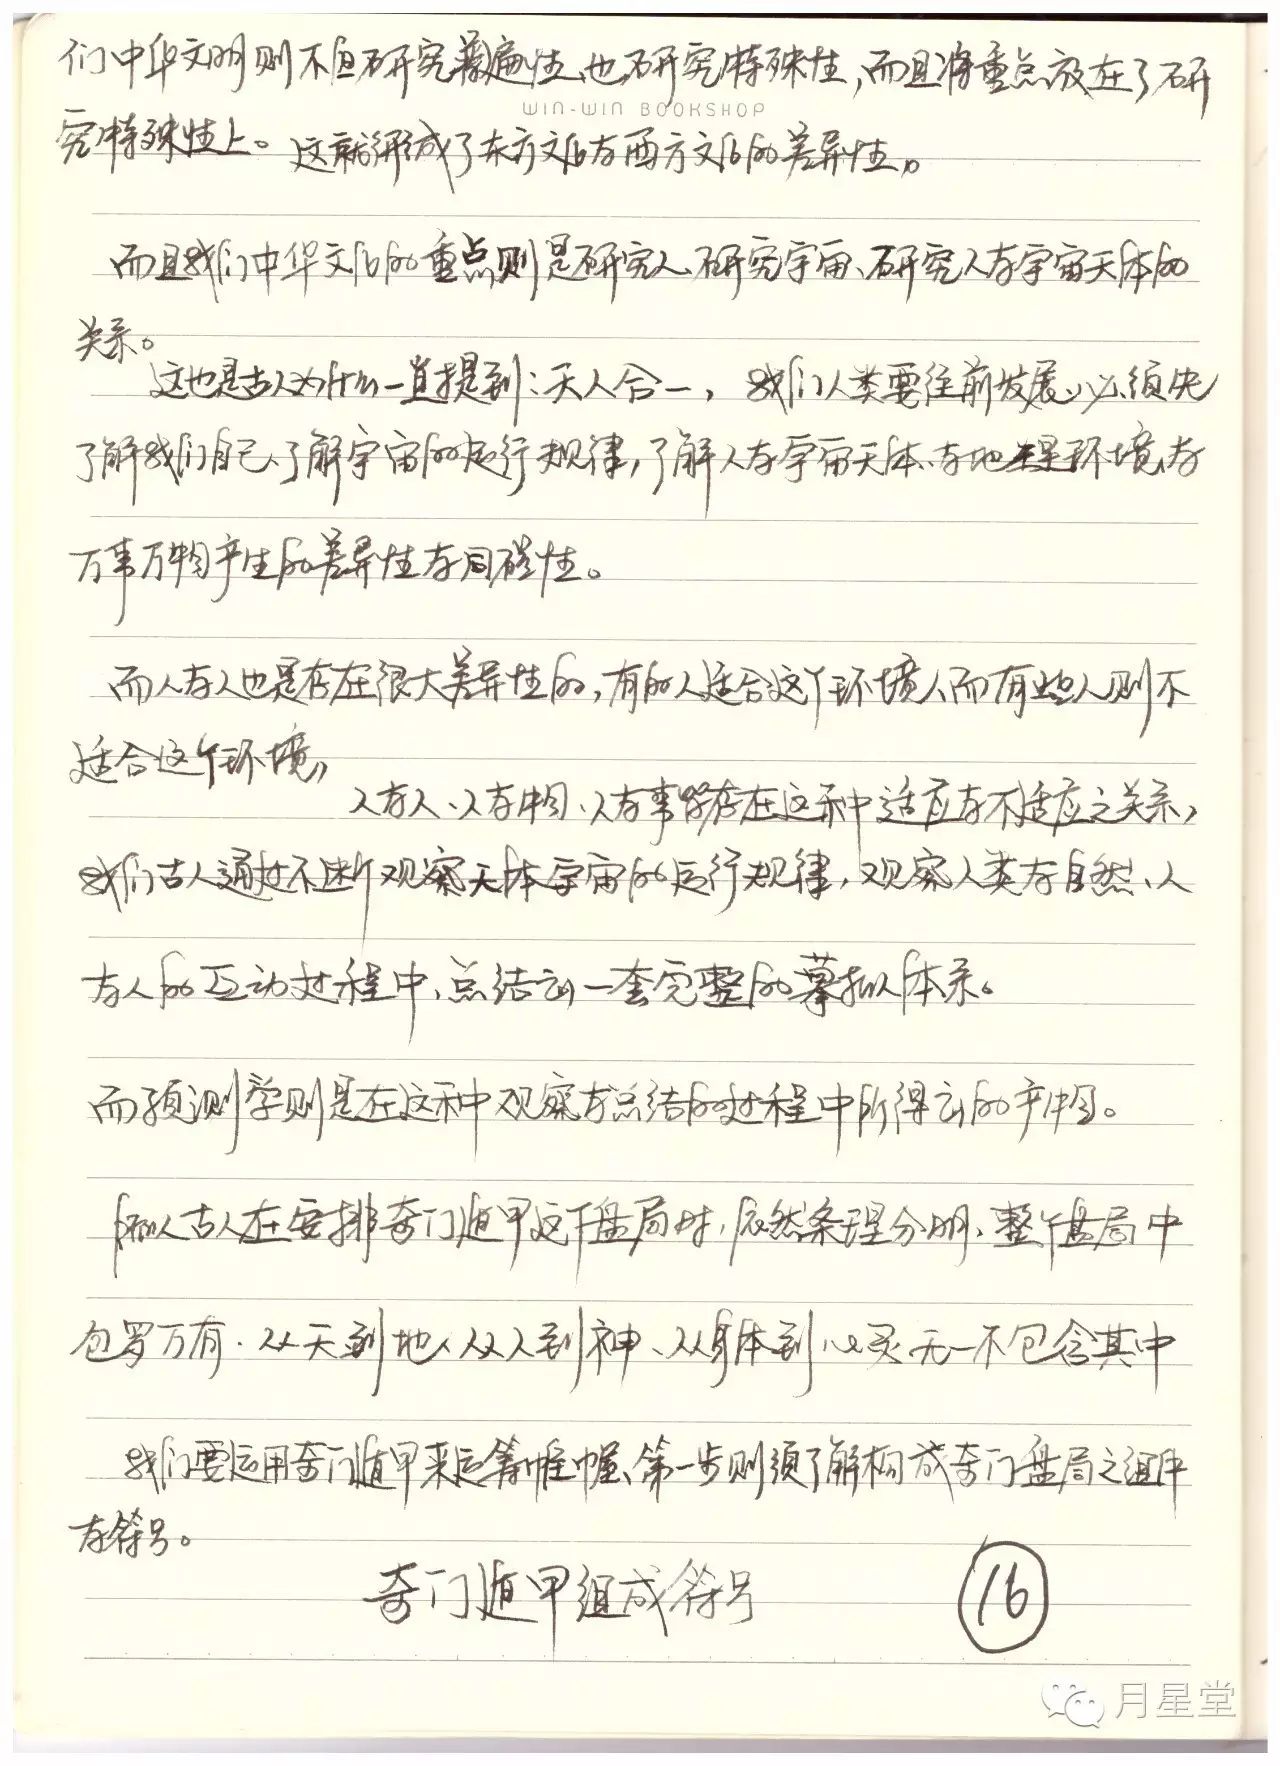 们中华文明则不但研究普遍性、也研究特殊性，而且将重点放在了研
WIN-WIN BOOKSHOP
究特殊性上。这就形成了东方文化与西方文化的差异性。
而且我们中华文化的重点则是研究人、研究宇宙、研究人与宇宙天体的
关系。
这也是古人为什么一直提到：天人合一，我们人类要往前发展、必须先
了解我们自己、了解宇宙的运行规律，了解人与宇宙天体、与地理环境、与
万事万物产生的差异性与同磁性。
而人与人也是存在很大差异性的，有的人适合这个环境、而有些人则不
适合这个环境，
人与人、人与物、人与事都存在这种适应与不适应之关系，
我们古人通过不断观察天体宇宙的运行规律，观察人类与自然、人
与人的互动过程中、总结出一套完整的摹拟体系。
而预测学则是在这种观察与总结的过程中所得出的产物。
所以古人在安排奇门遁甲这个盘局时，依然条理分明、整个盘局中
包罗万有．从天到地、从人到神、从身体到心灵无一不包含其中
我们要运用奇门遁甲来运筹帷幄、第一步则须了解构成奇门盘局之组件
与符号。
奇门遁甲组成符号
16
月星堂